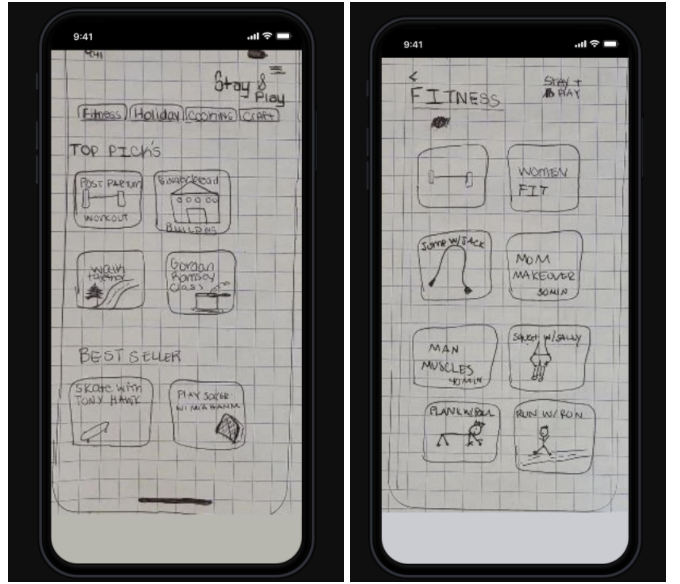 9:41
9:41
Stay &
Play
Fitness Holiday Cooking Craft
TOP PICK'S
POST PARTUM
WORKOUT
Gingerbread
BUILDING
Walk
together
Gordan
Ramsay
Class
BEST SELLER
SKATE WITH
TONY HAWK
PLAY SOCCER
W/ MIA HAMM
9:41
<
FITNESS
STAY +
PLAY
WOMEN
FIT
JUMP W/ JACK
MOM
MAKEOVER
30 MIN
MAN
MUSCLES
40 MIN
SQUAT W/ SALLY
PLANK W/
RUN W/ RON